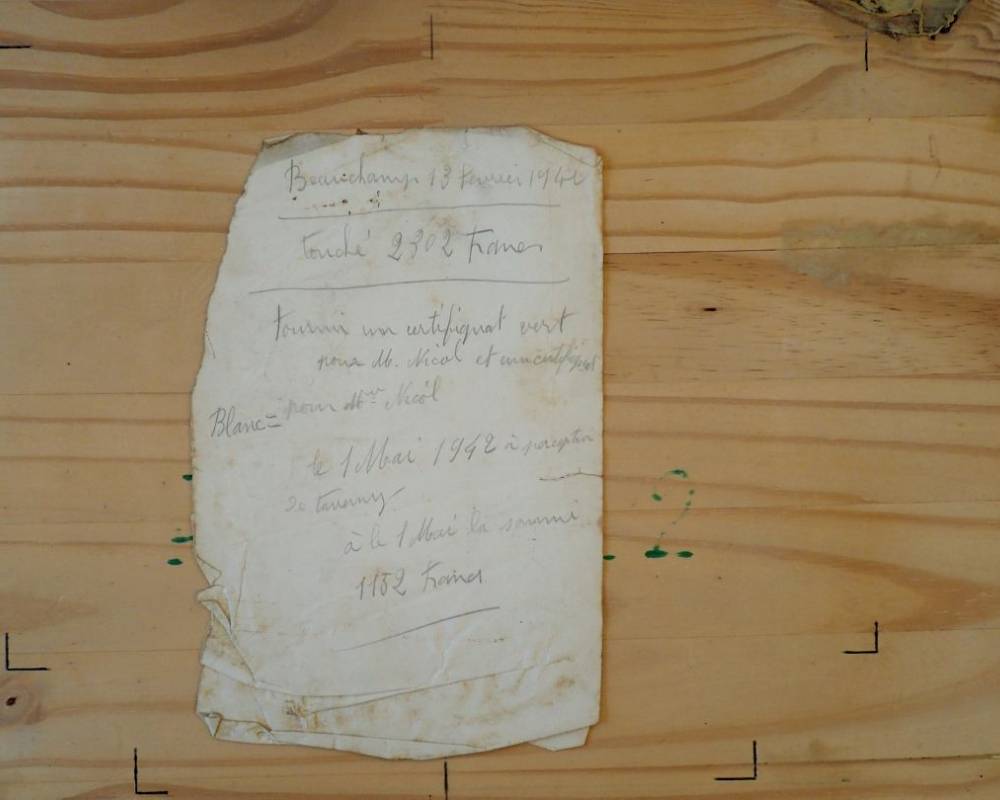 Beauchamp 13 Fevrier 1942
touché 2302 Francs
fourni un certifiquat vert
pour M. Nicol et un certifiquat
Blanc = pour Mme Nicol
le 1 Mai 1942 à perception
de taverny -
à le 1 Mai la sommi
1152 Francs
2